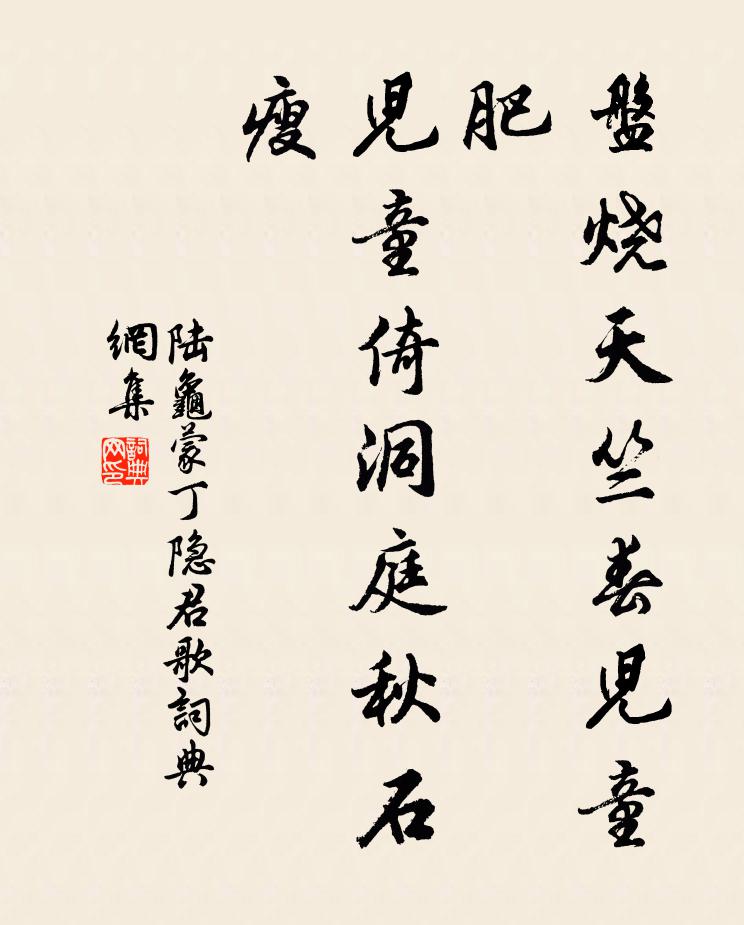 盤烧天竺春児童
肥
児童倚洞庭秋石
瘦
陆龜蒙丁隐君歌詞典
網集
詞典
网印